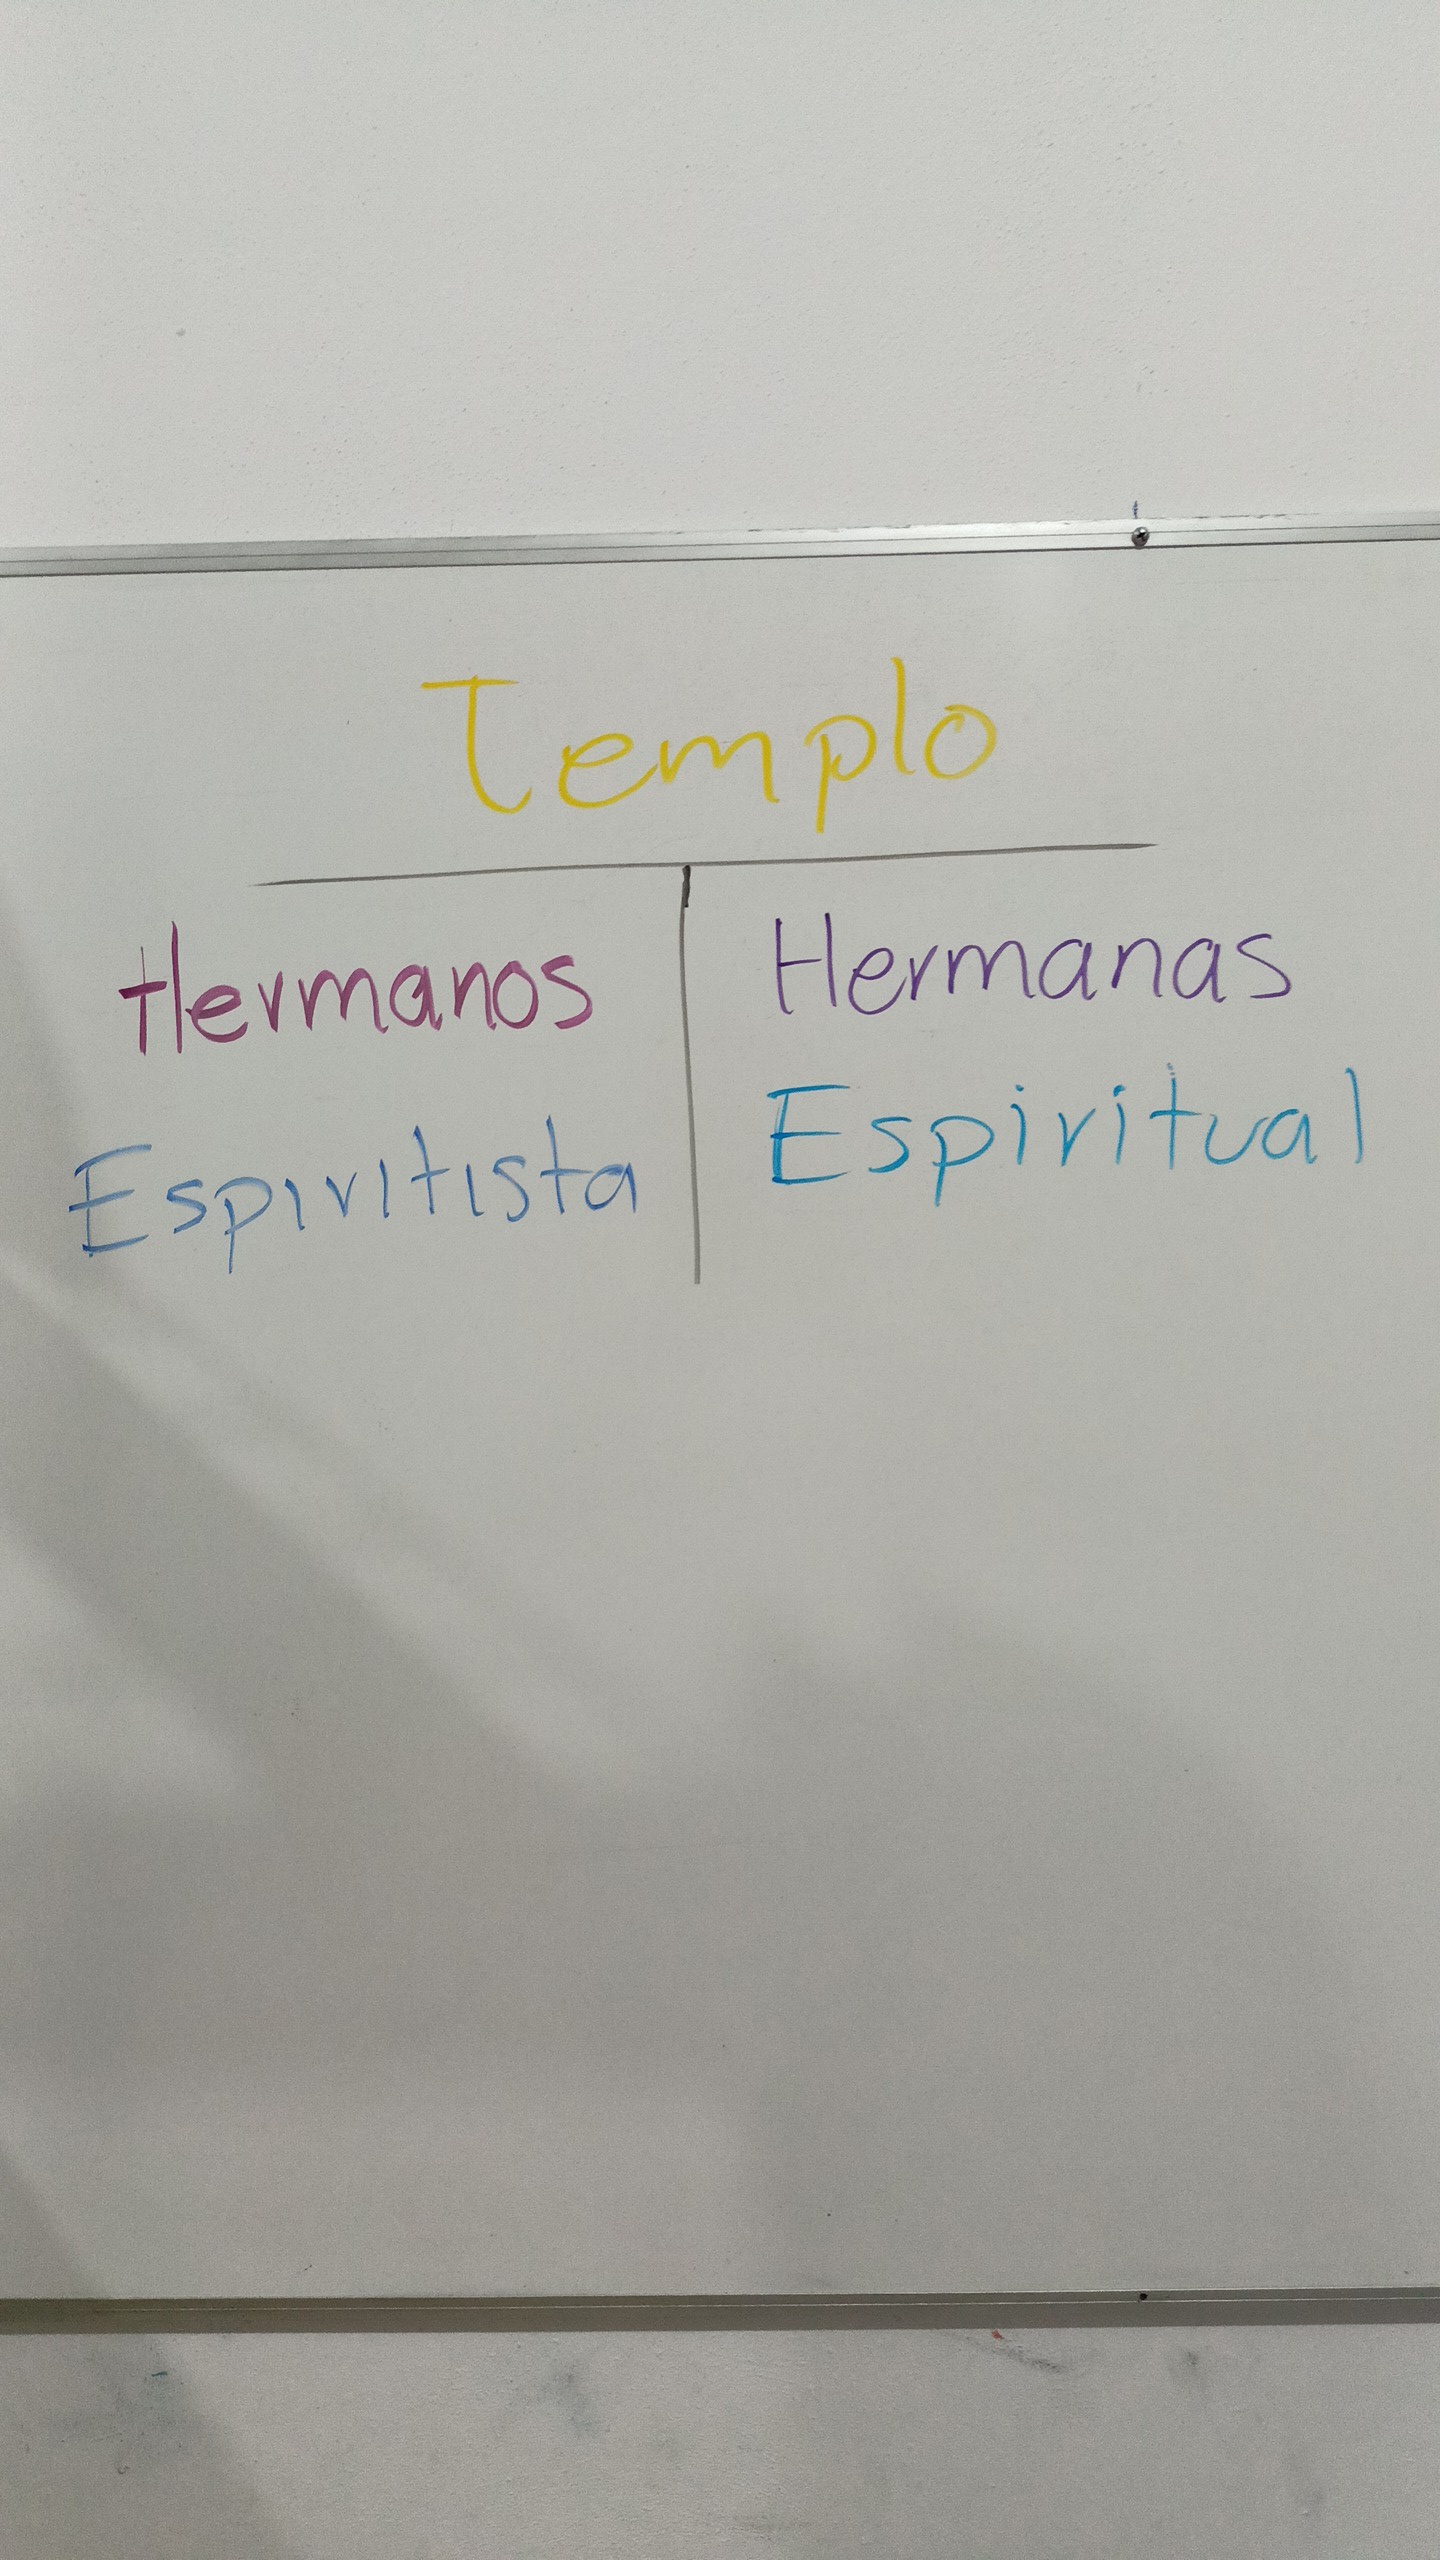 Templo
Hermanos
Espiritista
Hermanas
Espiritual